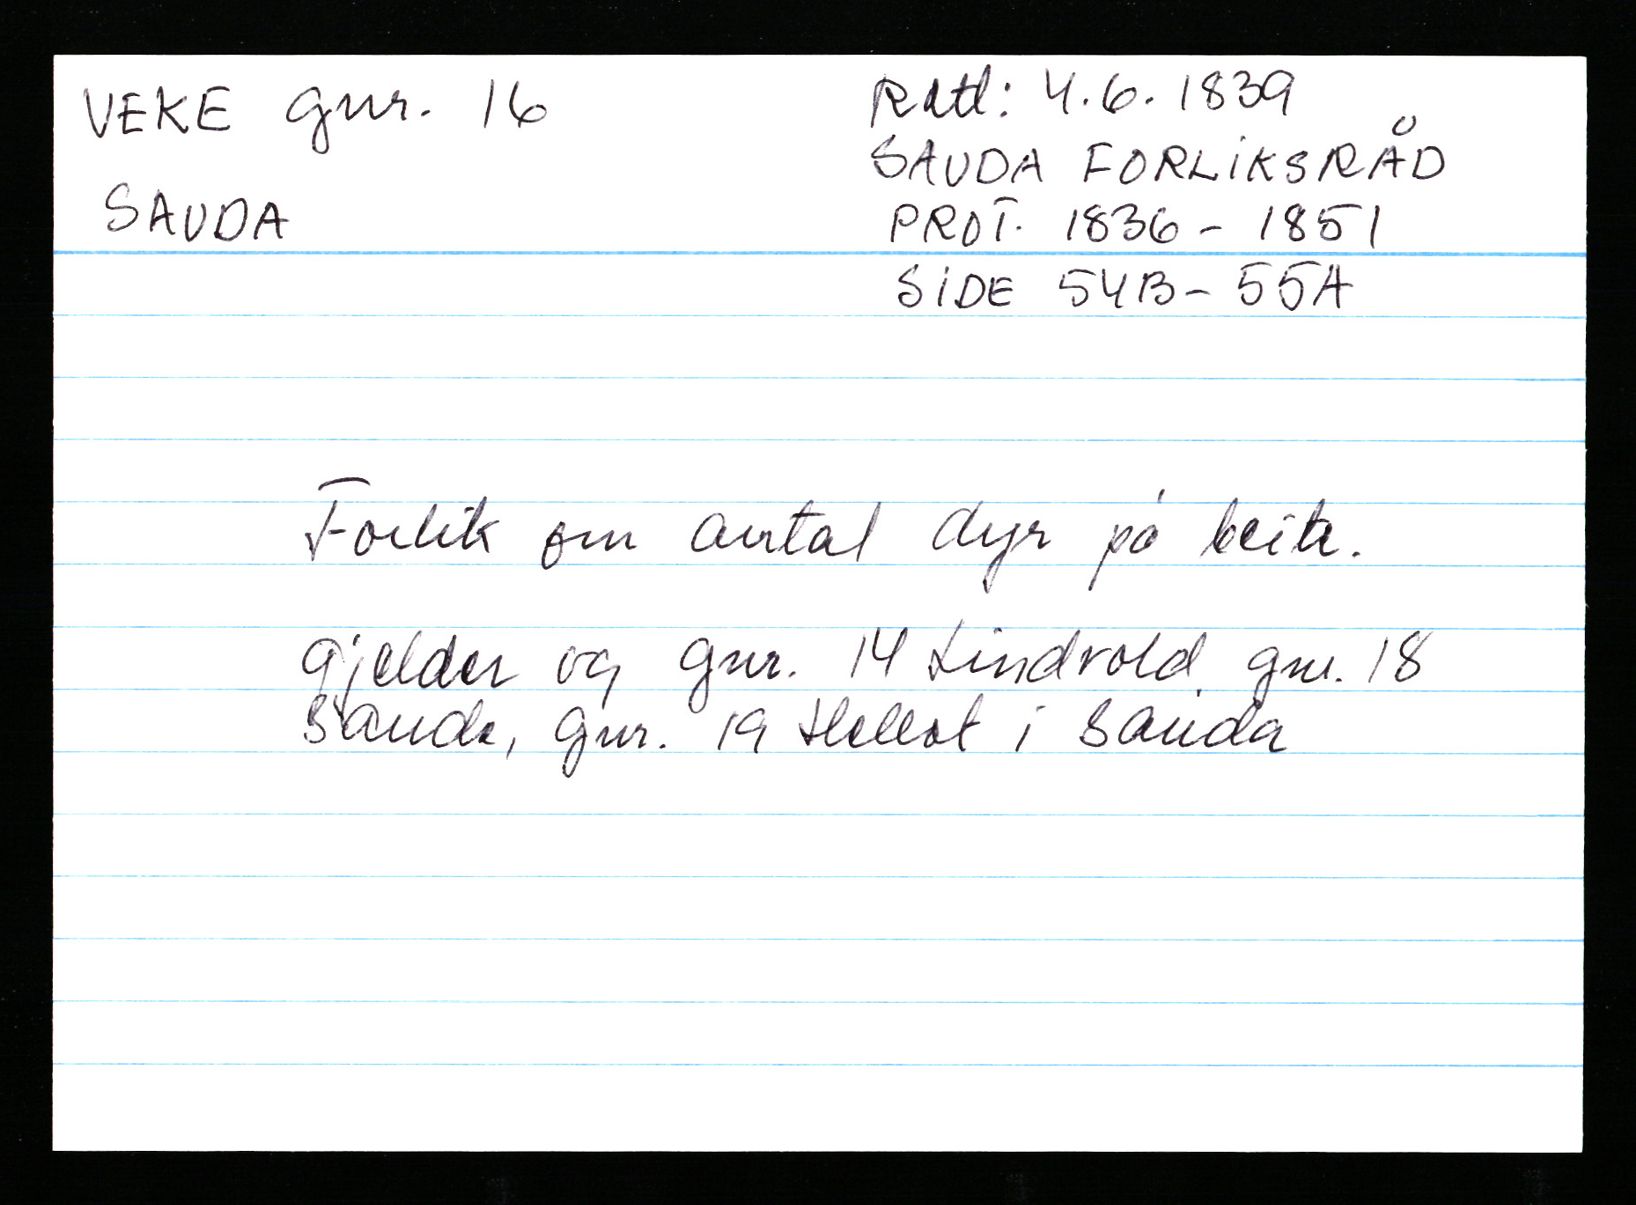 VEKE gnr. 16
SAUDA
Ratl: 4.6.1839
SAUDA FORLIKSRÅD
PROT. 1836 - 1851
SIDE 54B - 55A
Forlik om antal dyr på beite.
Gjelder og gnr. 14 Lindvold gnr. 18
Sauda, gnr. 19 i Sauda